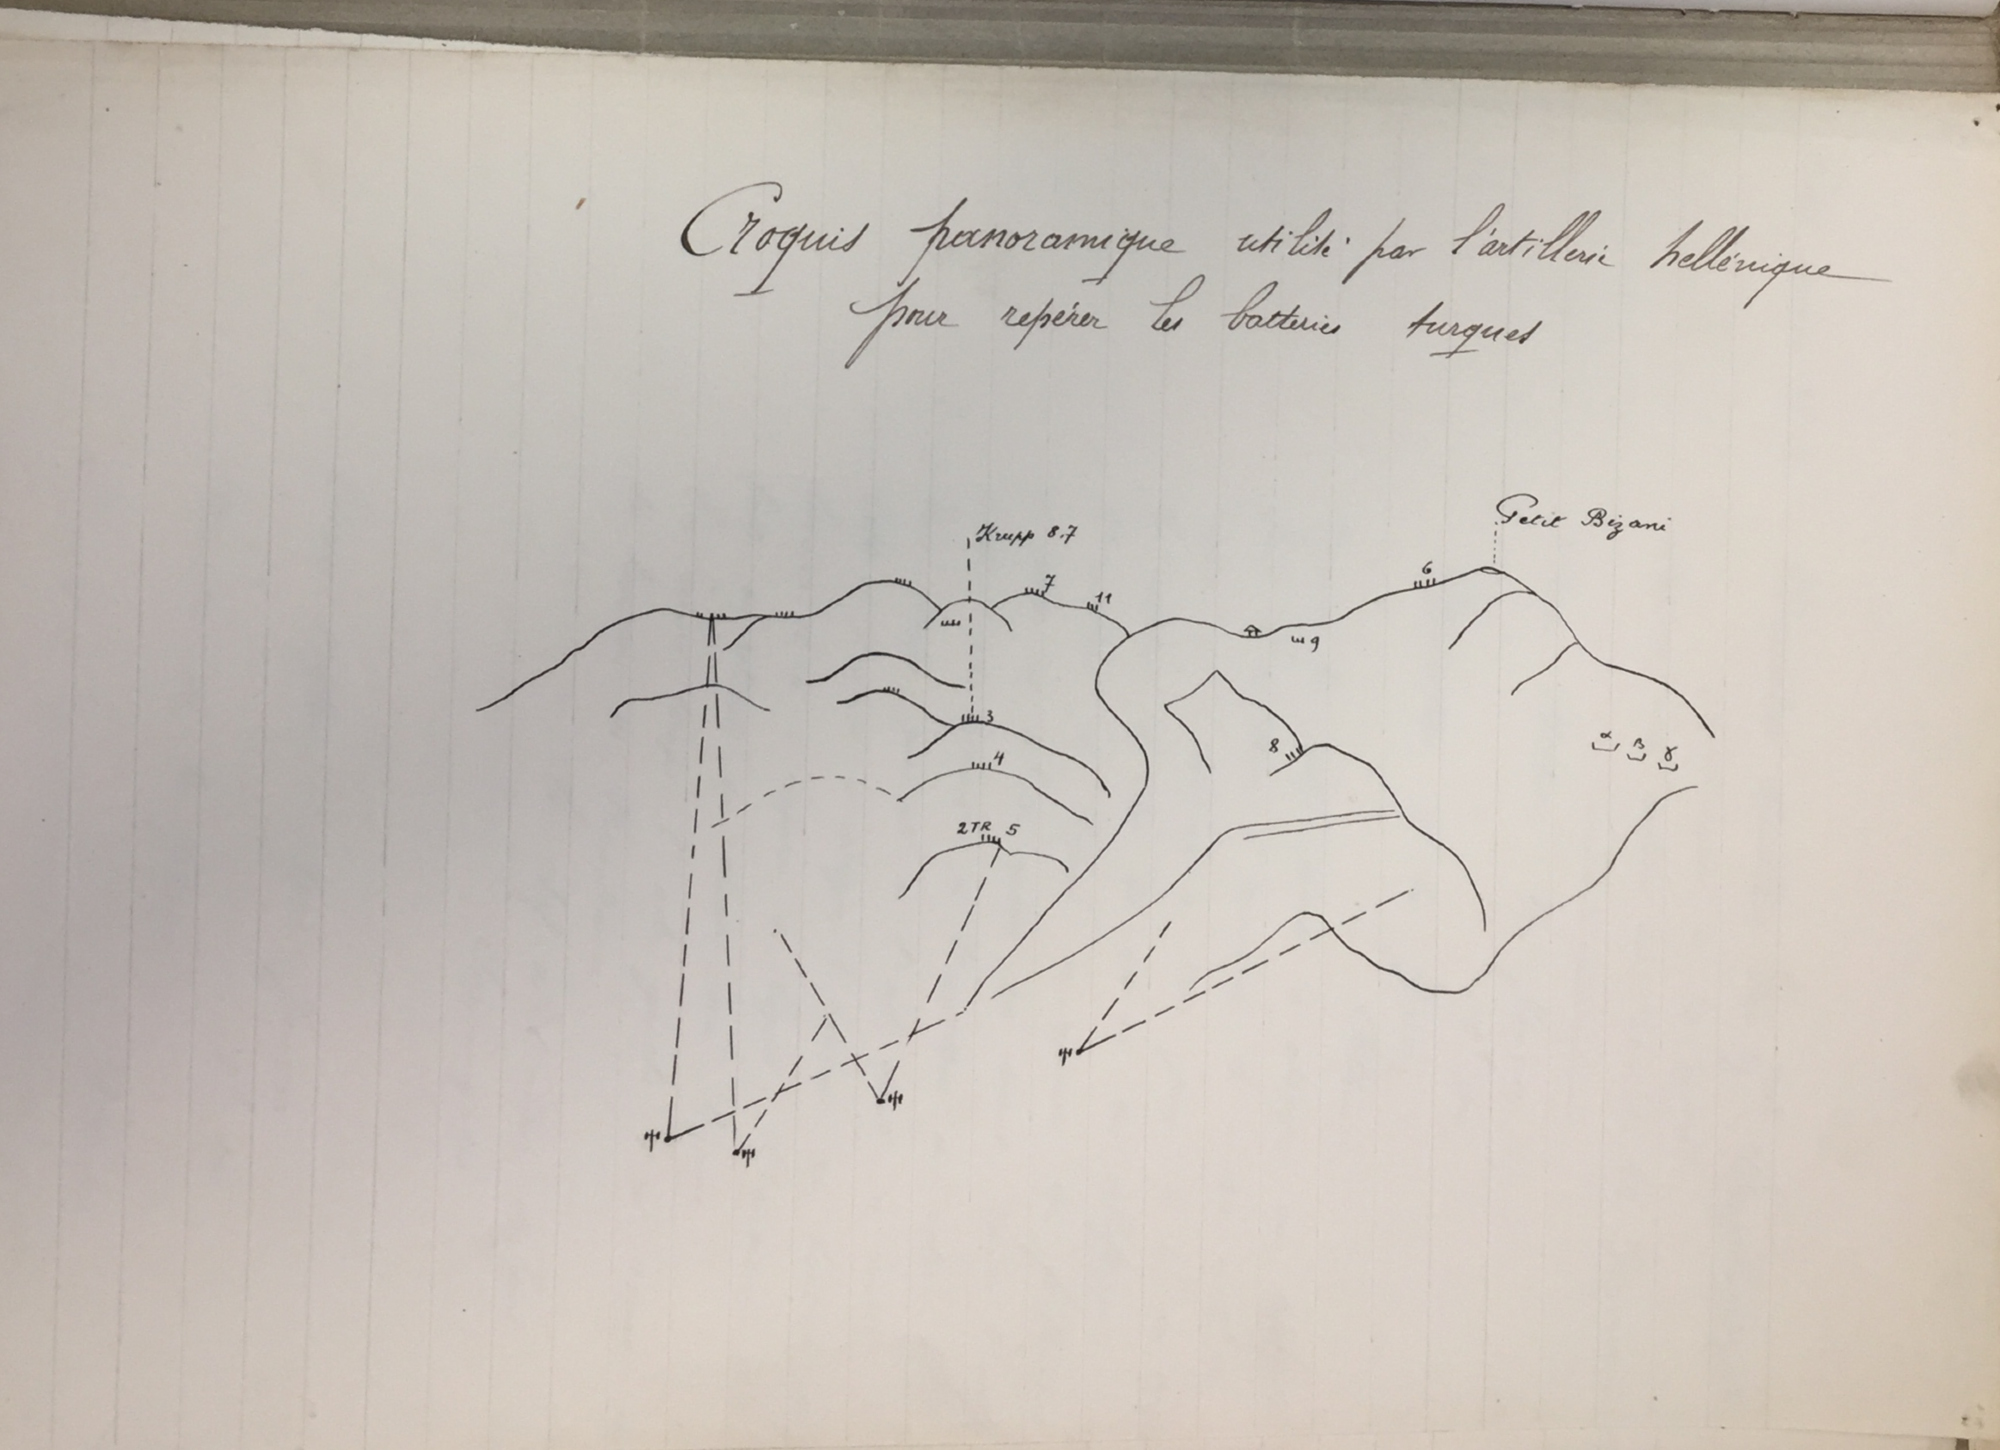 Croquis panoramique utilisé par l'artillerie hellénique
pour repérer les batteries turques
Petit Bizani
Krupp 8.7
6
7
11
9
3
8
α β γ
4
2TR 5